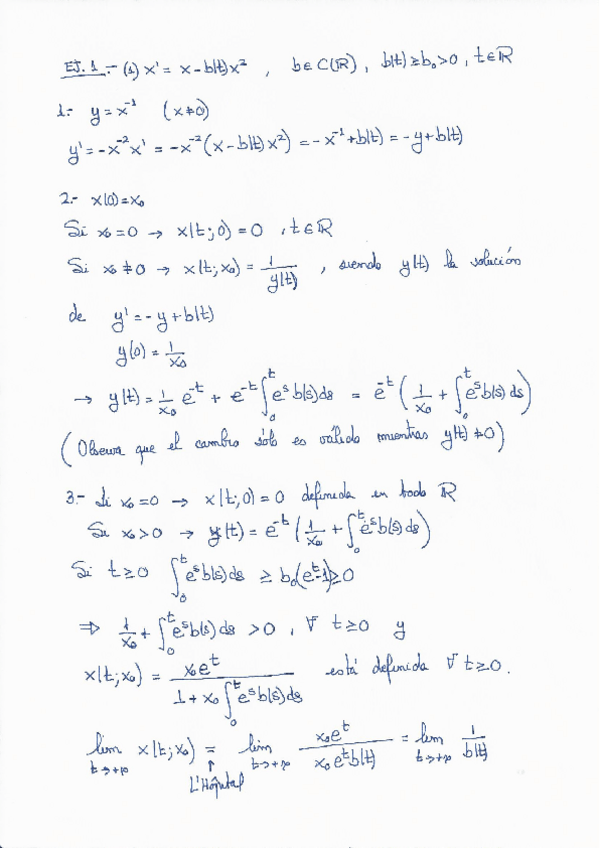 EJ. 1.- (1) x' = x - b(t)x² , b ∈ C(ℝ) , b(t) ≥ b₀ > 0 , t ∈ ℝ
1.- y = x⁻¹ (x ≠ 0)
y' = -x⁻² x' = -x⁻² (x - b(t)x²) = -x⁻¹ + b(t) = -y + b(t)
2.- x(0) = x₀
Si x₀ = 0 → x(t; 0) = 0 , t ∈ ℝ
Si x₀ ≠ 0 → x(t; x₀) = 1/y(t) , siendo y(t) la solución
de y' = -y + b(t)
y(0) = 1/x₀
→ y(t) = 1/x₀ e⁻ᵗ + e⁻ᵗ ∫₀ᵗ eˢ b(s) ds = e⁻ᵗ ( 1/x₀ + ∫₀ᵗ eˢ b(s) ds )
(Observa que el cambio sólo es válido mientras y(t) ≠ 0)
3.- Si x₀ = 0 → x(t; 0) = 0 definida en todo ℝ
Si x₀ > 0 → y(t) = e⁻ᵗ ( 1/x₀ + ∫₀ᵗ eˢ b(s) ds )
Si t ≥ 0 ∫₀ᵗ eˢ b(s) ds ≥ b₀(eᵗ - 1) ≥ 0
⇒ 1/x₀ + ∫₀ᵗ eˢ b(s) ds > 0 , ∀ t ≥ 0 y
x(t; x₀) = x₀eᵗ / (1 + x₀ ∫₀ᵗ eˢ b(s) ds) está definida ∀ t ≥ 0.
lim t→+∞ x(t; x₀) = lim t→+∞ x₀eᵗ / (x₀eᵗ b(t)) = lim t→+∞ 1/b(t)
↑
L'Hôpital